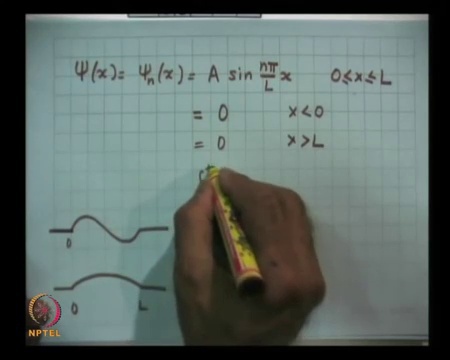 Ψ(x) = Ψn(x) = A sin nπ/L x 0≤x≤L
= 0 x<0
= 0 x>L
0
0 L
NPTEL